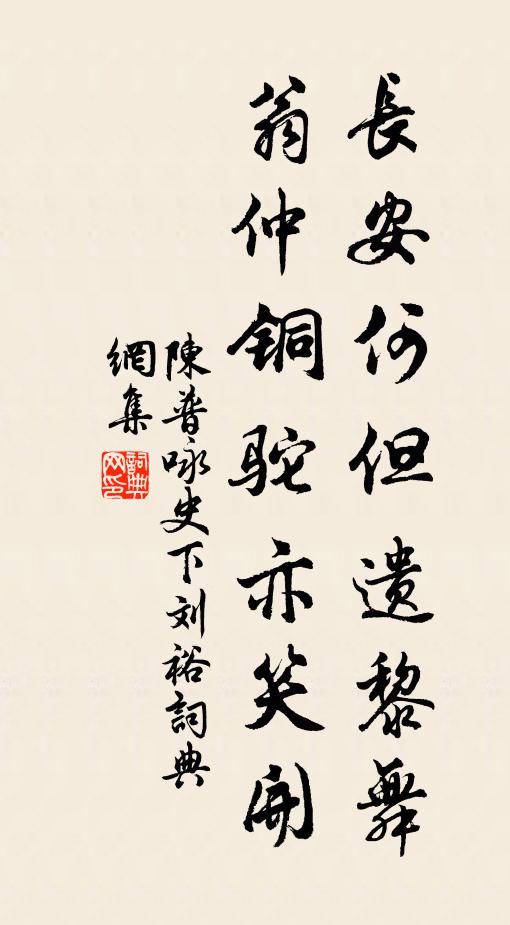 長安何但遗黎舞
翁仲铜驼亦笑開
陳普咏史下刘裕詞典
網集
詞典网印